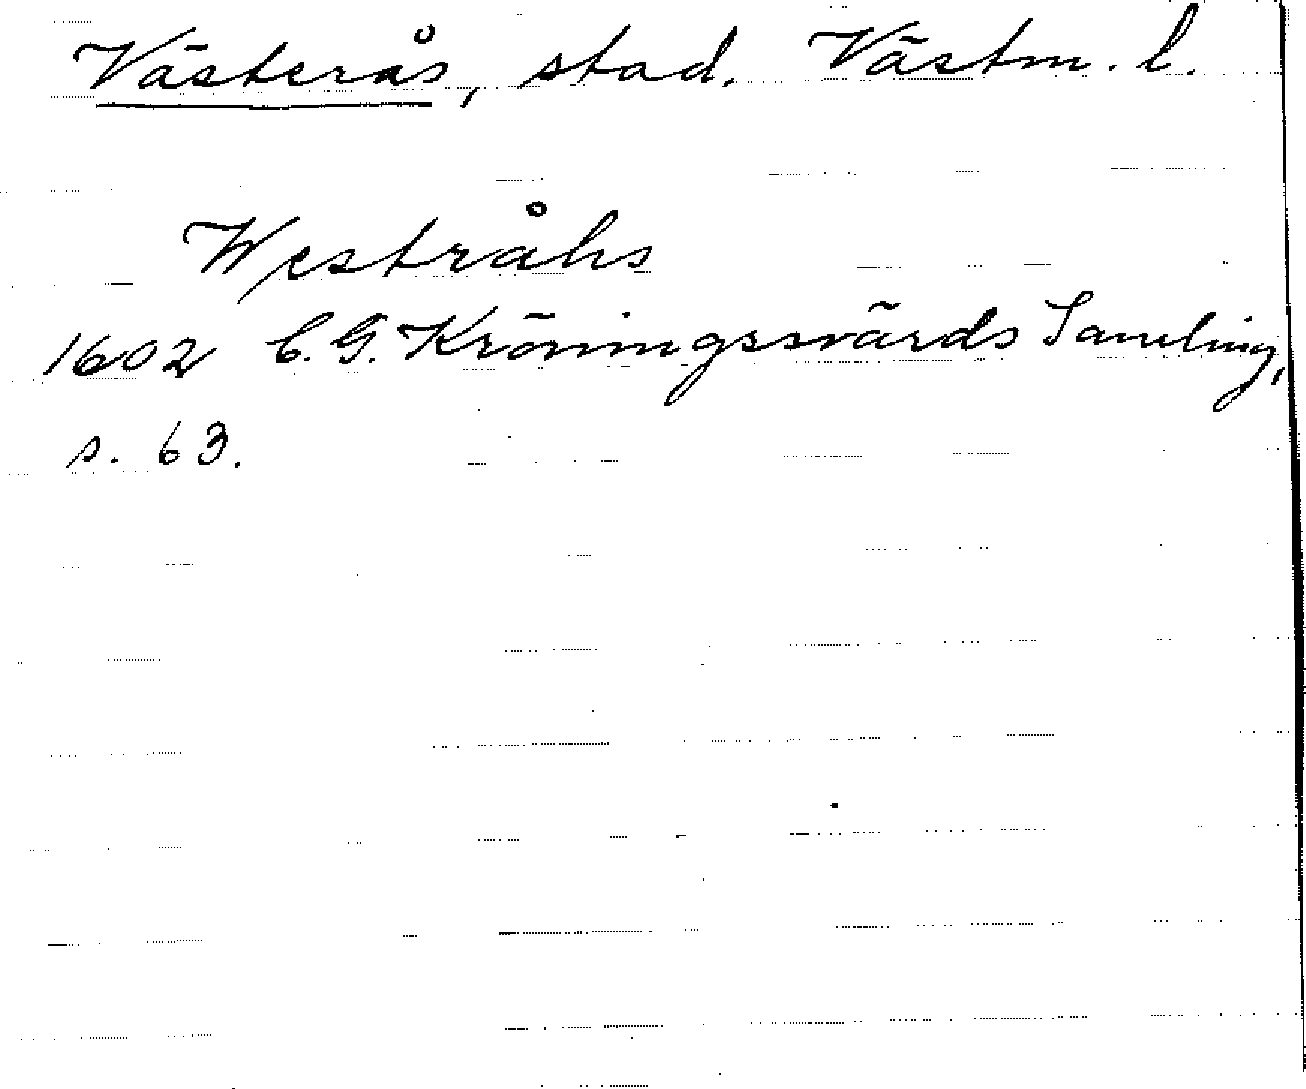 Västerås, stad. Västm. l.
Westråhs
1602 C. G. Kröningssvärds Samling,
s. 63.